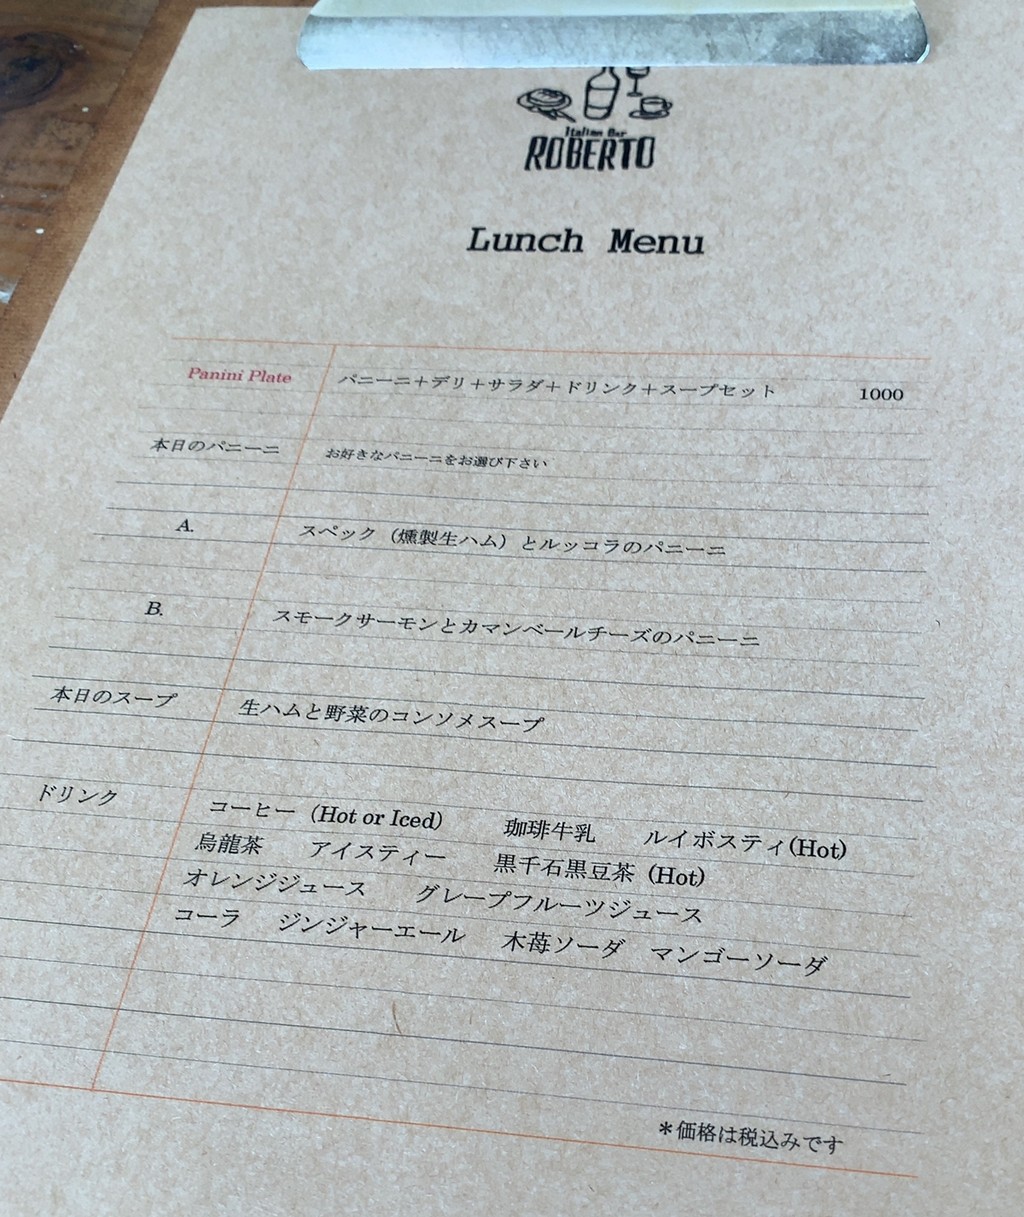 Italian Bar
ROBERTO
Lunch Menu
Panini Plate パニーニ＋デリ＋サラダ＋ドリンク＋スープセット 1000
本日のパニーニ お好きなパニーニをお選び下さい
A. スペック（燻製生ハム）とルッコラのパニーニ
B. スモークサーモンとカマンベールチーズのパニーニ
本日のスープ 生ハムと野菜のコンソメスープ
ドリンク コーヒー（Hot or Iced） 珈琲牛乳 ルイボスティ(Hot)
烏龍茶 アイスティー 黒千石黒豆茶 (Hot)
オレンジジュース グレープフルーツジュース
コーラ ジンジャーエール 木苺ソーダ マンゴーソーダ
＊価格は税込みです